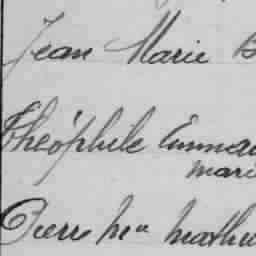 Jean Marie
Théophile Emma
mari
Pierre Mie Mathu